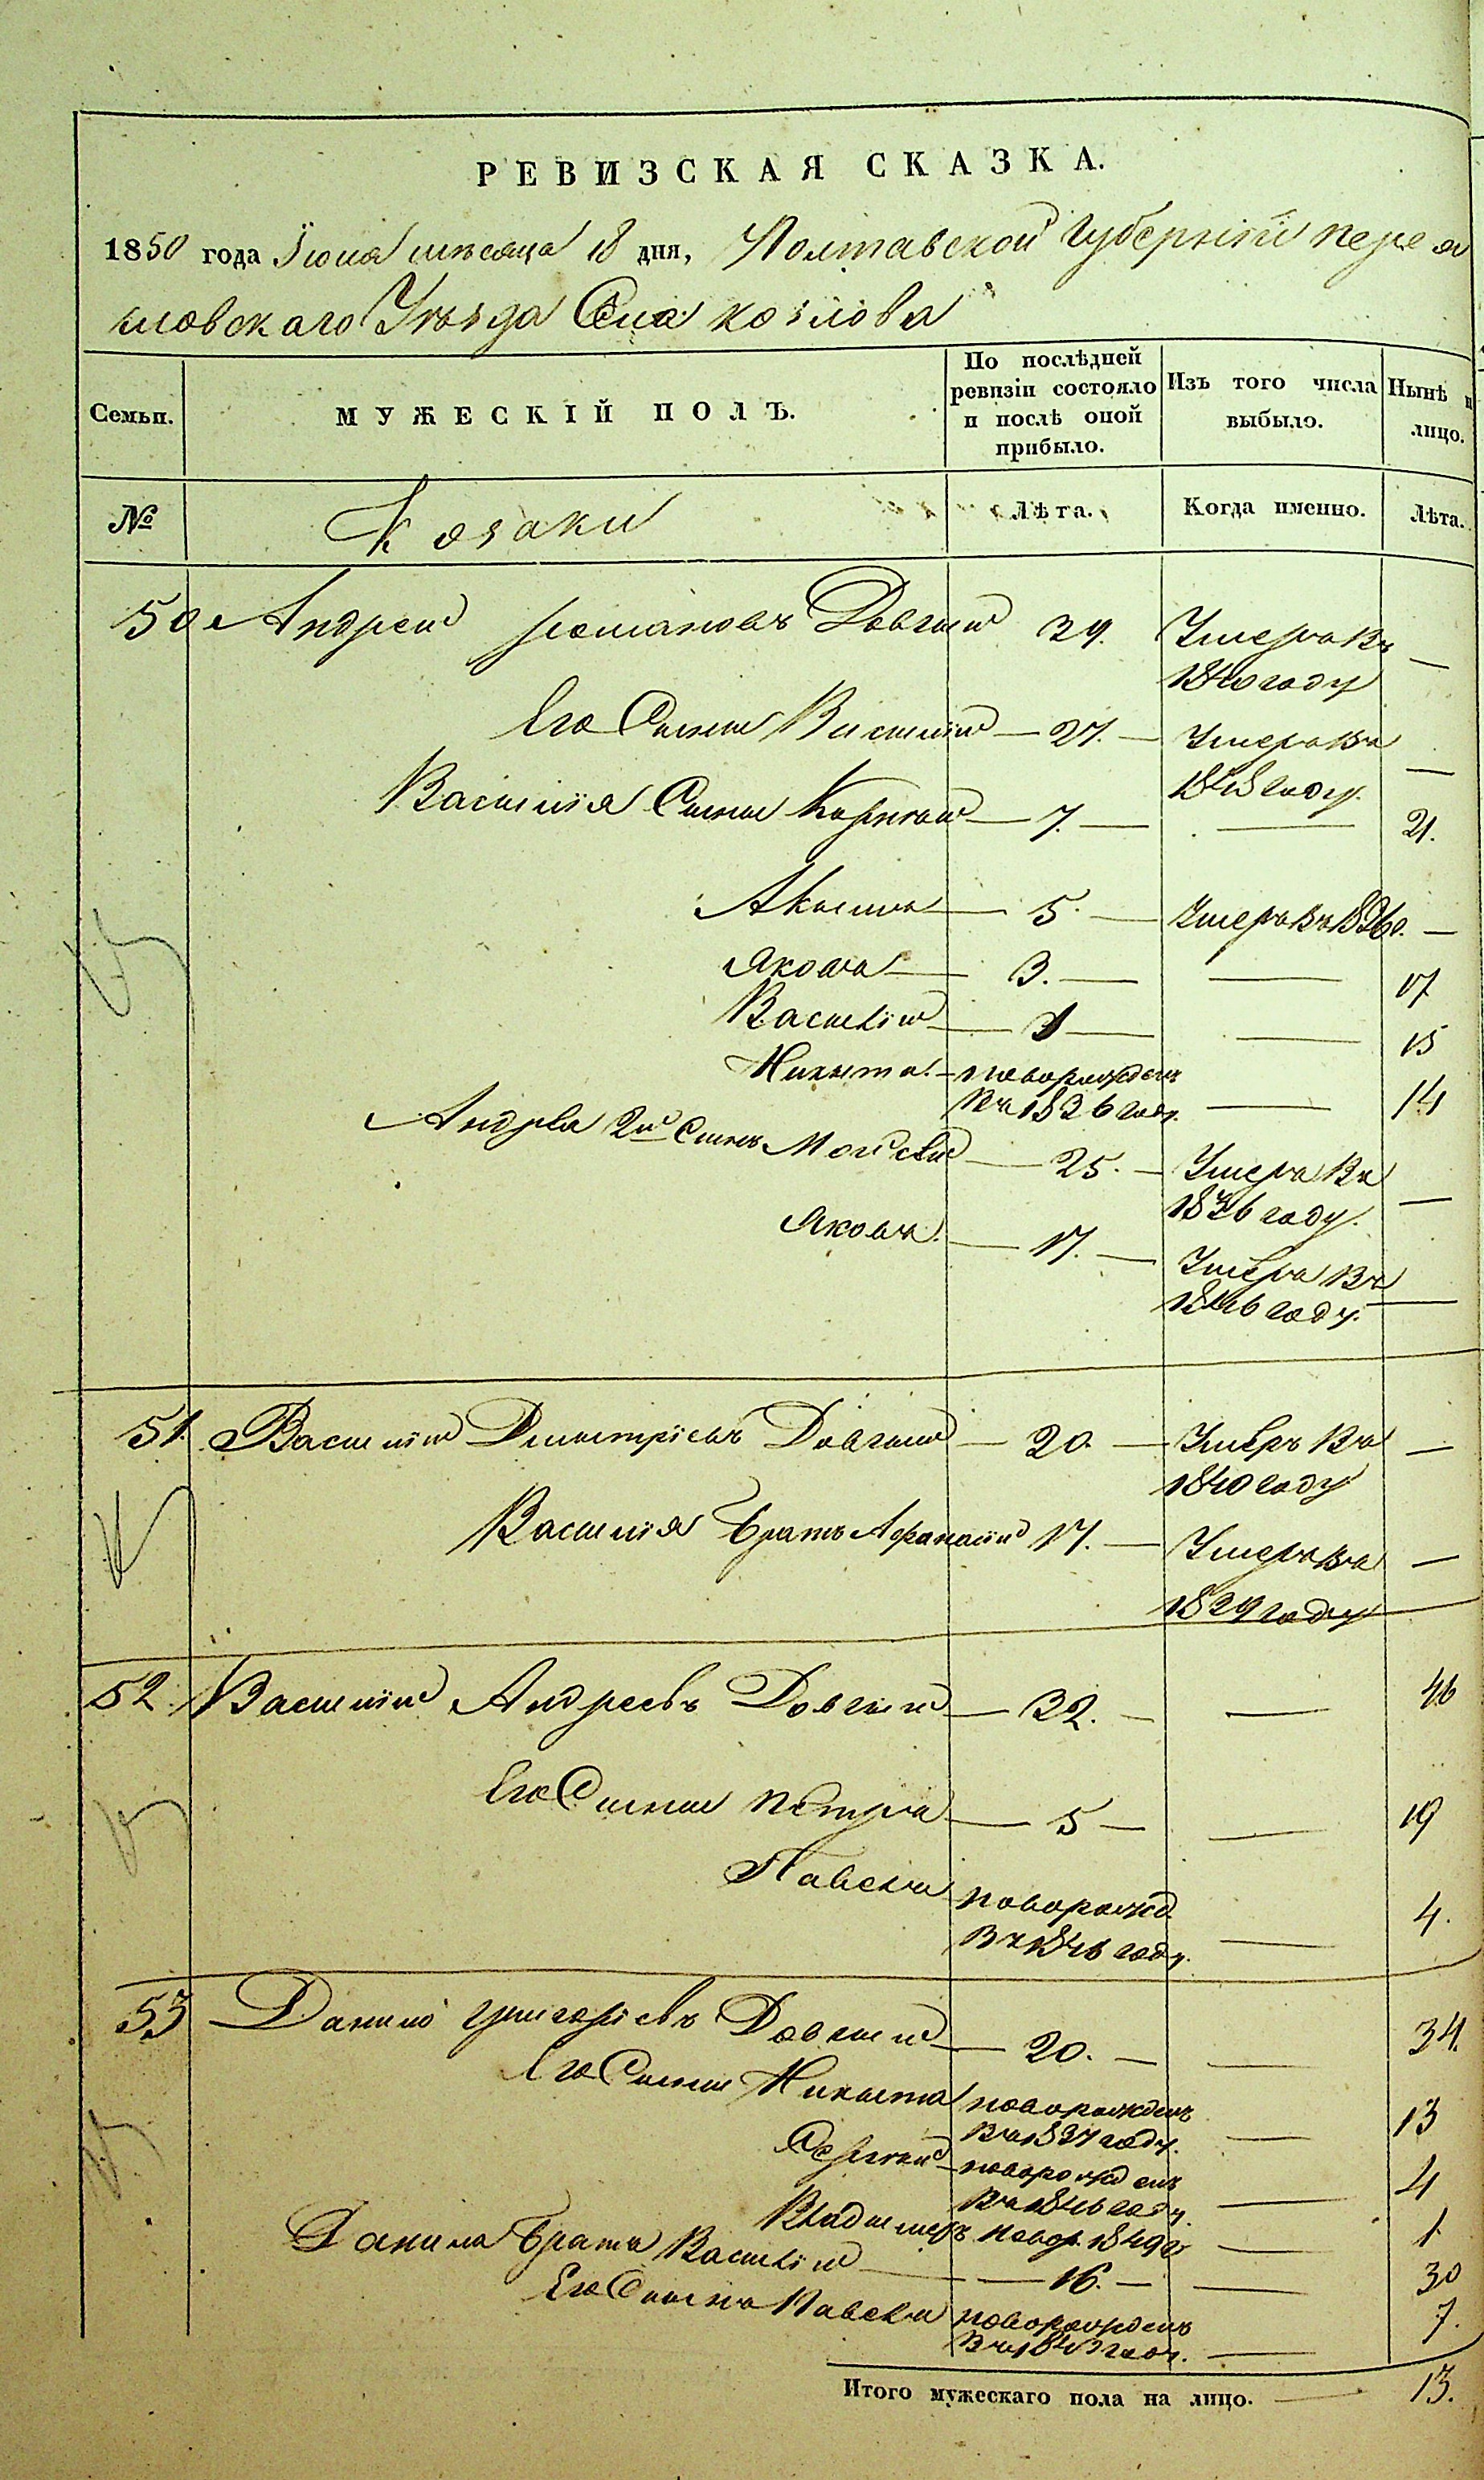 РЕВИЗСКАЯ СКАЗКА.
1850 года Іюня мѣсяца 18 дня, Полтавской Губерніи Перея
словскаго Уѣзда Села Козлова
Семьи. МУЖЕСКІЙ ПОЛЪ. По послѣдней ревизіи состояло и послѣ оной прибыло. Изъ того числа выбыло. Нынѣ н лицо.
№ Козаки Лѣта. Когда именно. Лѣта.
50 Андрей Романовъ Довгий 39. Умеръ въ —
1840 году
Его Сыны Василій — 27. — Умеръ въ —
1848 году.
Василія Сыны Корней — 7. — — 21.
Акимъ — 5. — Умеръ въ 1836. —
Яковъ — 3. — — 17
Василій — 1 — — 15
Никита. — новорожденъ
въ 1836 году. — 14
Андрея 2й Сынъ Мойсей — 25. — Умеръ въ
1846 году. —
Яковъ. — 17. — Умеръ въ
1846 году. —
51. Василій Дмитріевъ Довгий — 20. — Умеръ въ —
1840 году
Василія братъ Афанасій 17. — Умеръ въ —
1839 году
52. Василій Андреевъ Довгий — 32. — — 46
Его Сыны Петръ — 5 — — 19
Павелъ новорожд.
въ 1846 году. — 4.
53 Данило Григорьевъ Довгий — 20. — — 34.
Его Сыны Никита новорожденъ
въ 1837 году. — 13
Сергій — новорожденъ
въ 1846 году. — 4
Владимеръ новор. 1849 г — 1.
Данила братъ Василій — 16. — — 30
Его Сынъ Павелъ новорожденъ 7.
въ 1843 году. —
Итого мужескаго пола на лицо. — 13.